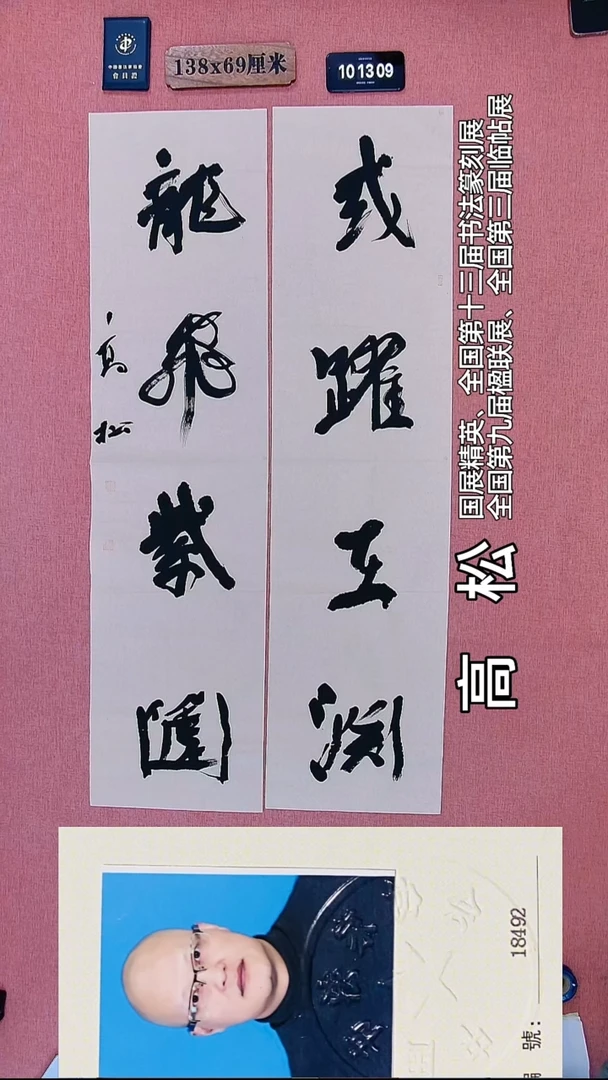 中國書法家協會
會員證
138x69厘米
10 13 09
或躍在淵
龍飛紫
高松
国展精英、全国第十三届书法篆刻展
全国第九届楹联展、全国第三届临帖展
高 松
編 號: 18492